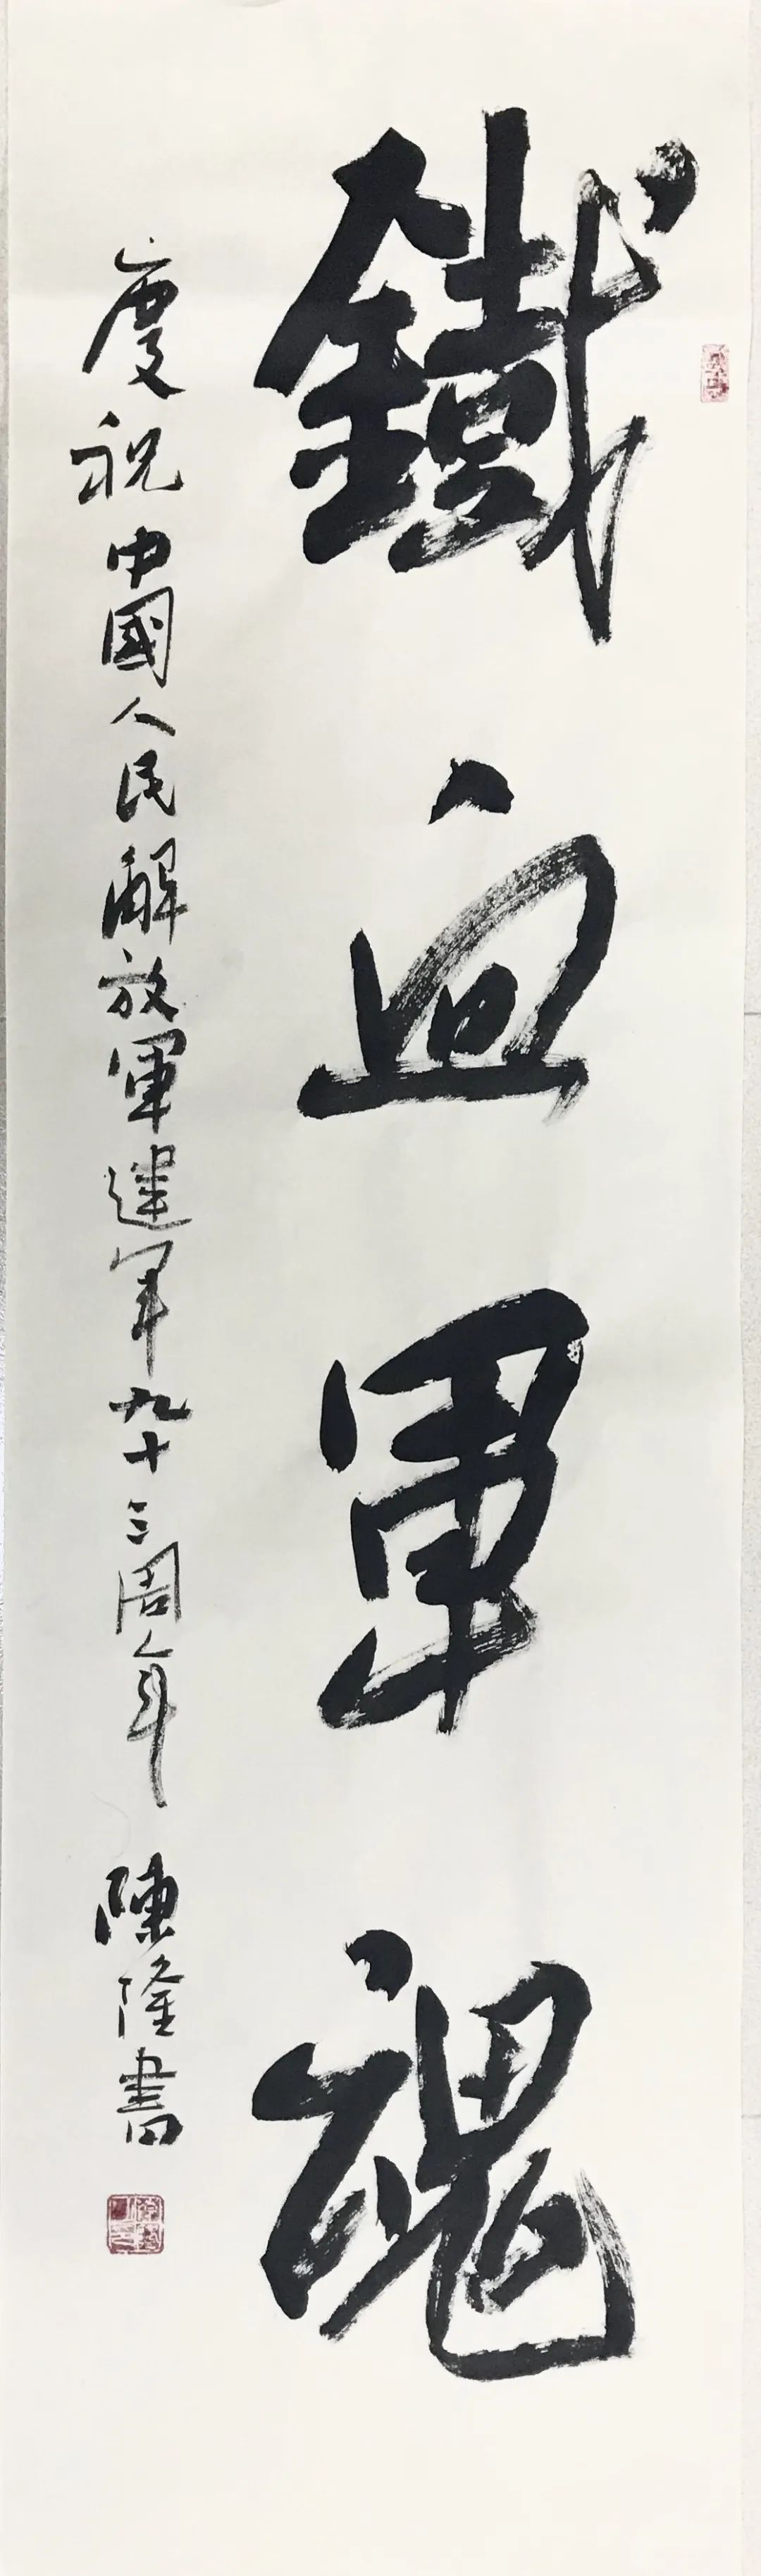 鐵血軍魂
慶祝中國人民解放軍建军九十三周年 陳隆書